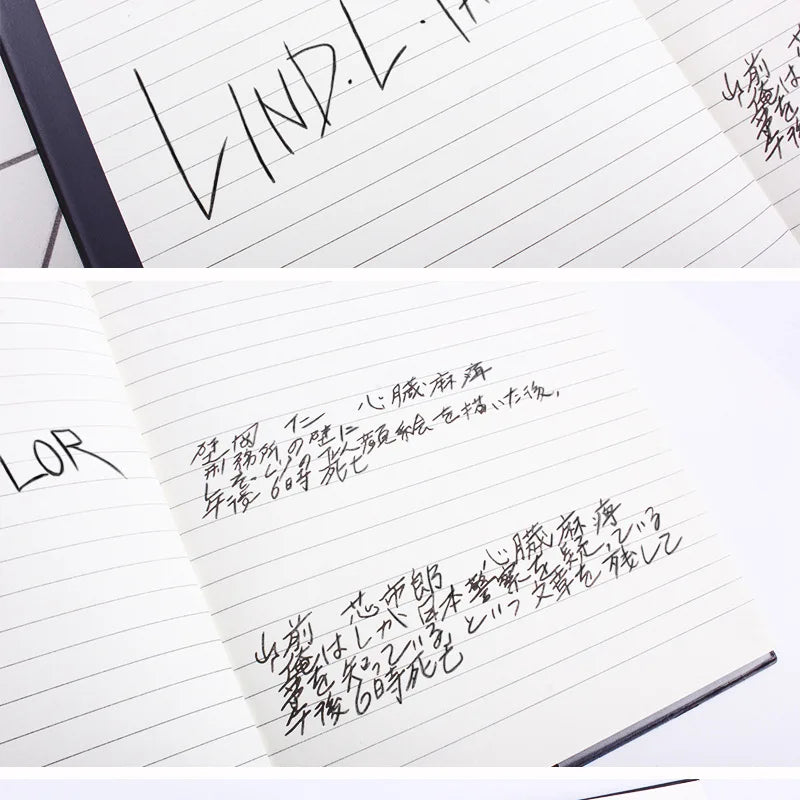 LIND.L.
前
俺は
を
午後
LOR
心臓麻痺
刑務所の壁に
を描いた後、
午後6時死亡
山前 芯市郎 心臓麻痺
俺はLが日本警察を疑っている
事を知っている。という文章を残して
午後6時死亡